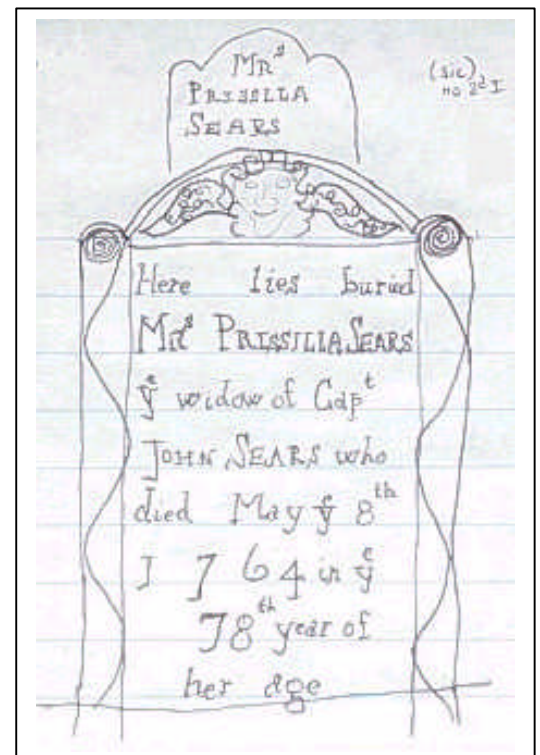 Mrs
PRISSILLA
SEARS
(sic)
no 2d I
Here lies buried
Mrs PRISSILLA SEARS
ye widow of Capt
JOHN SEARS who
died May ye 8th
I 7 6 4 in ye
78th year of
her age